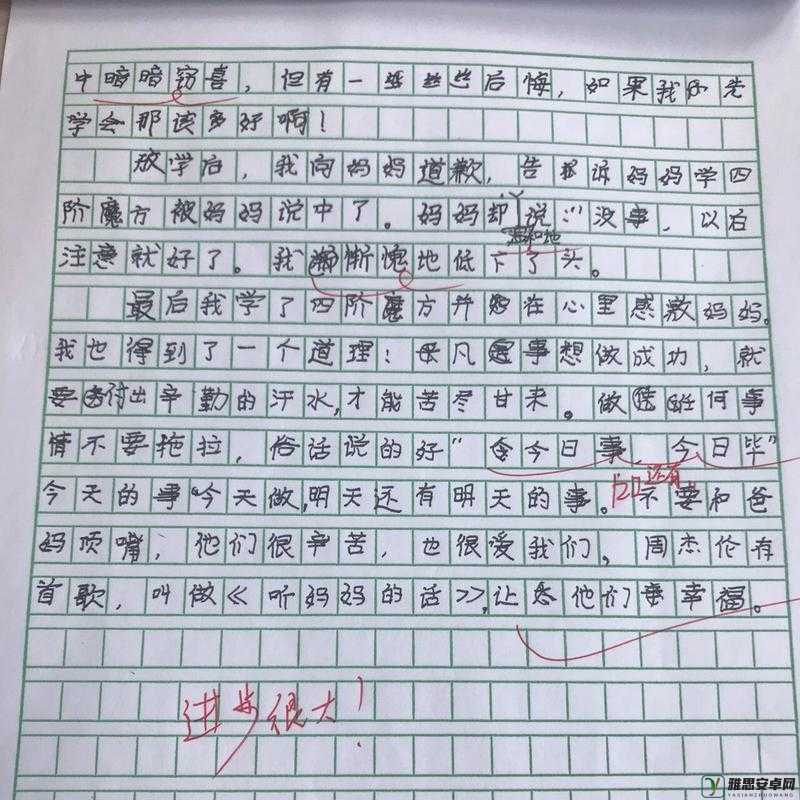 中暗暗窃喜，但有一丝丝后悔，如果我先
学会那该多好啊！
放学后，我向妈妈道歉，告诉妈妈学四
阶魔方被妈妈说中了。妈妈却说：“没事，以后
温和地
注意就好了。我惭愧地低下了头。
最后我学了四阶魔方并在心里感激妈妈。
我也得到了一个道理：凡事想做成功，就
要付出辛勤的汗水，才能苦尽甘来。做任何事
情不要拖拉，俗话说的好“今日事，今日毕”
今天的事今天做，明天还有明天的事。还有不要和爸
妈顶嘴，他们很辛苦，也很爱我们，周杰伦有
首歌，叫做《听妈妈的话》，让他们幸福。
进步很大！
雅思安卓网
YASIANZHUOWANG